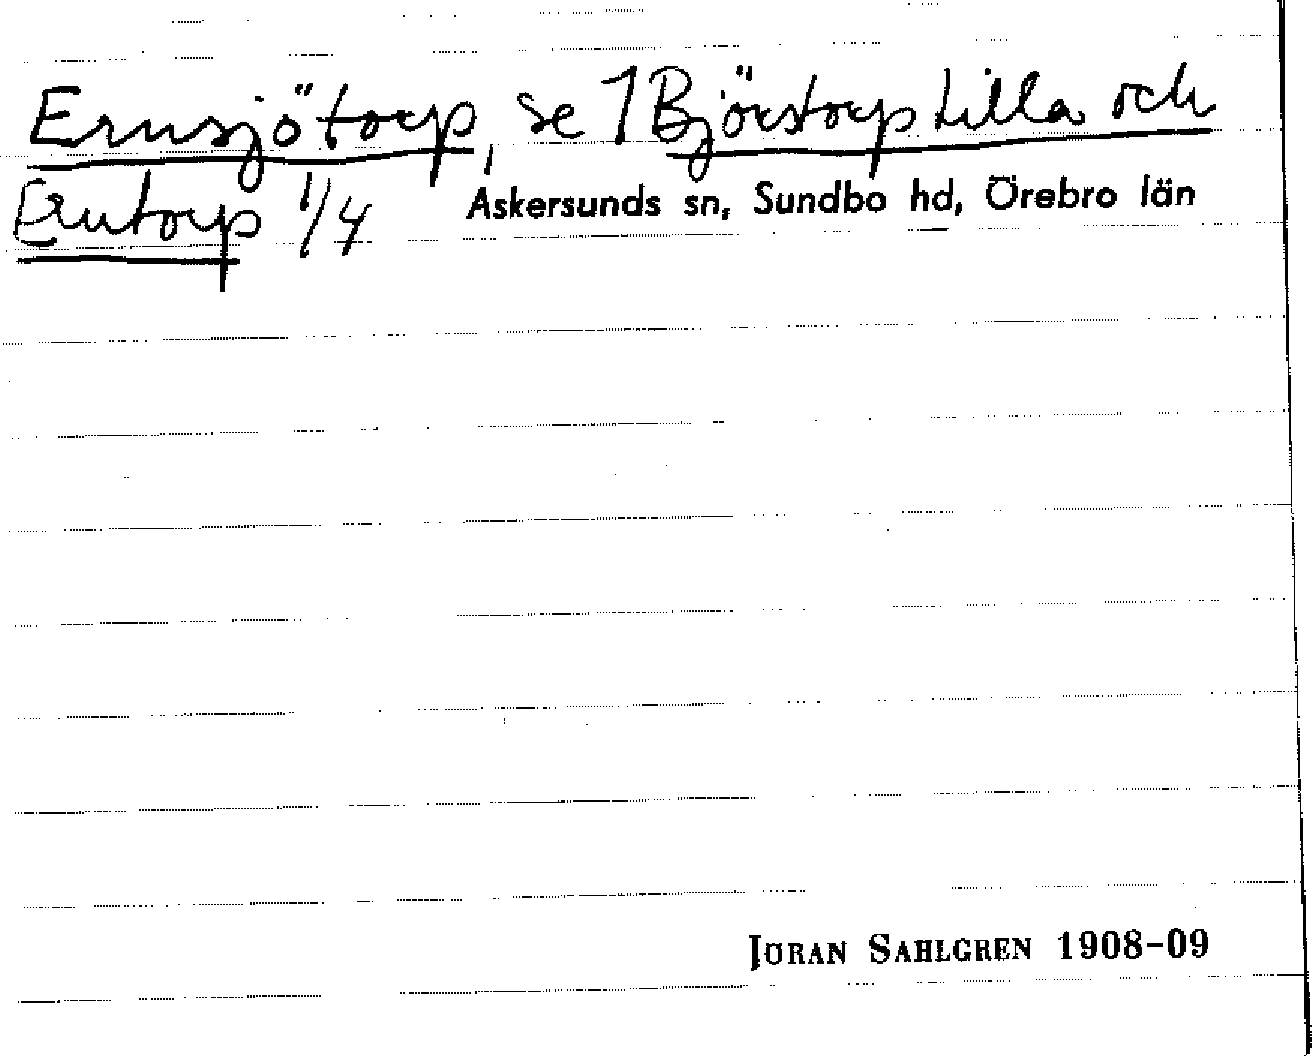 Ernsjötorp, se 1 Björstorp Lilla och
Erntorp 1/4 Askersunds sn, Sundbo hd, Örebro län
JÖRAN SAHLGREN 1908-09